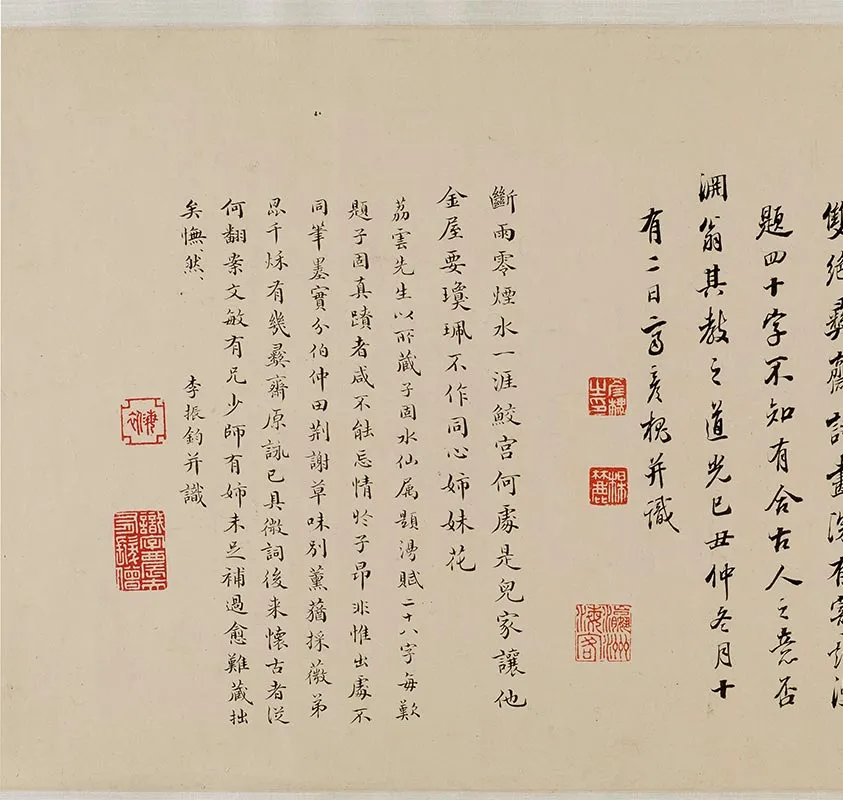 絕彝齋詩畫深有寄
題四十字不知有合古人之意否
澗翁其教之道光己丑仲冬月十
有二日齊彥槐并識
彥槐之印
梅麓
斷雨零煙水一涯鮫宮何處是兒家讓他
金屋要瓊珮不作同心姊妹花
荔雲先生以所藏子固水仙属題湧賦二十八字每歎
題子固真蹟者咸不能忘情於子昂非惟出處不
同筆墨實分伯仲田荆謝草味別薰蕕採薇弟
思千秌有幾彝齋原詠已具微詞後来懷古者從
何翻案文敏有兄少師有姊未足補過愈難藏拙
矣憮然
李振鈞并識